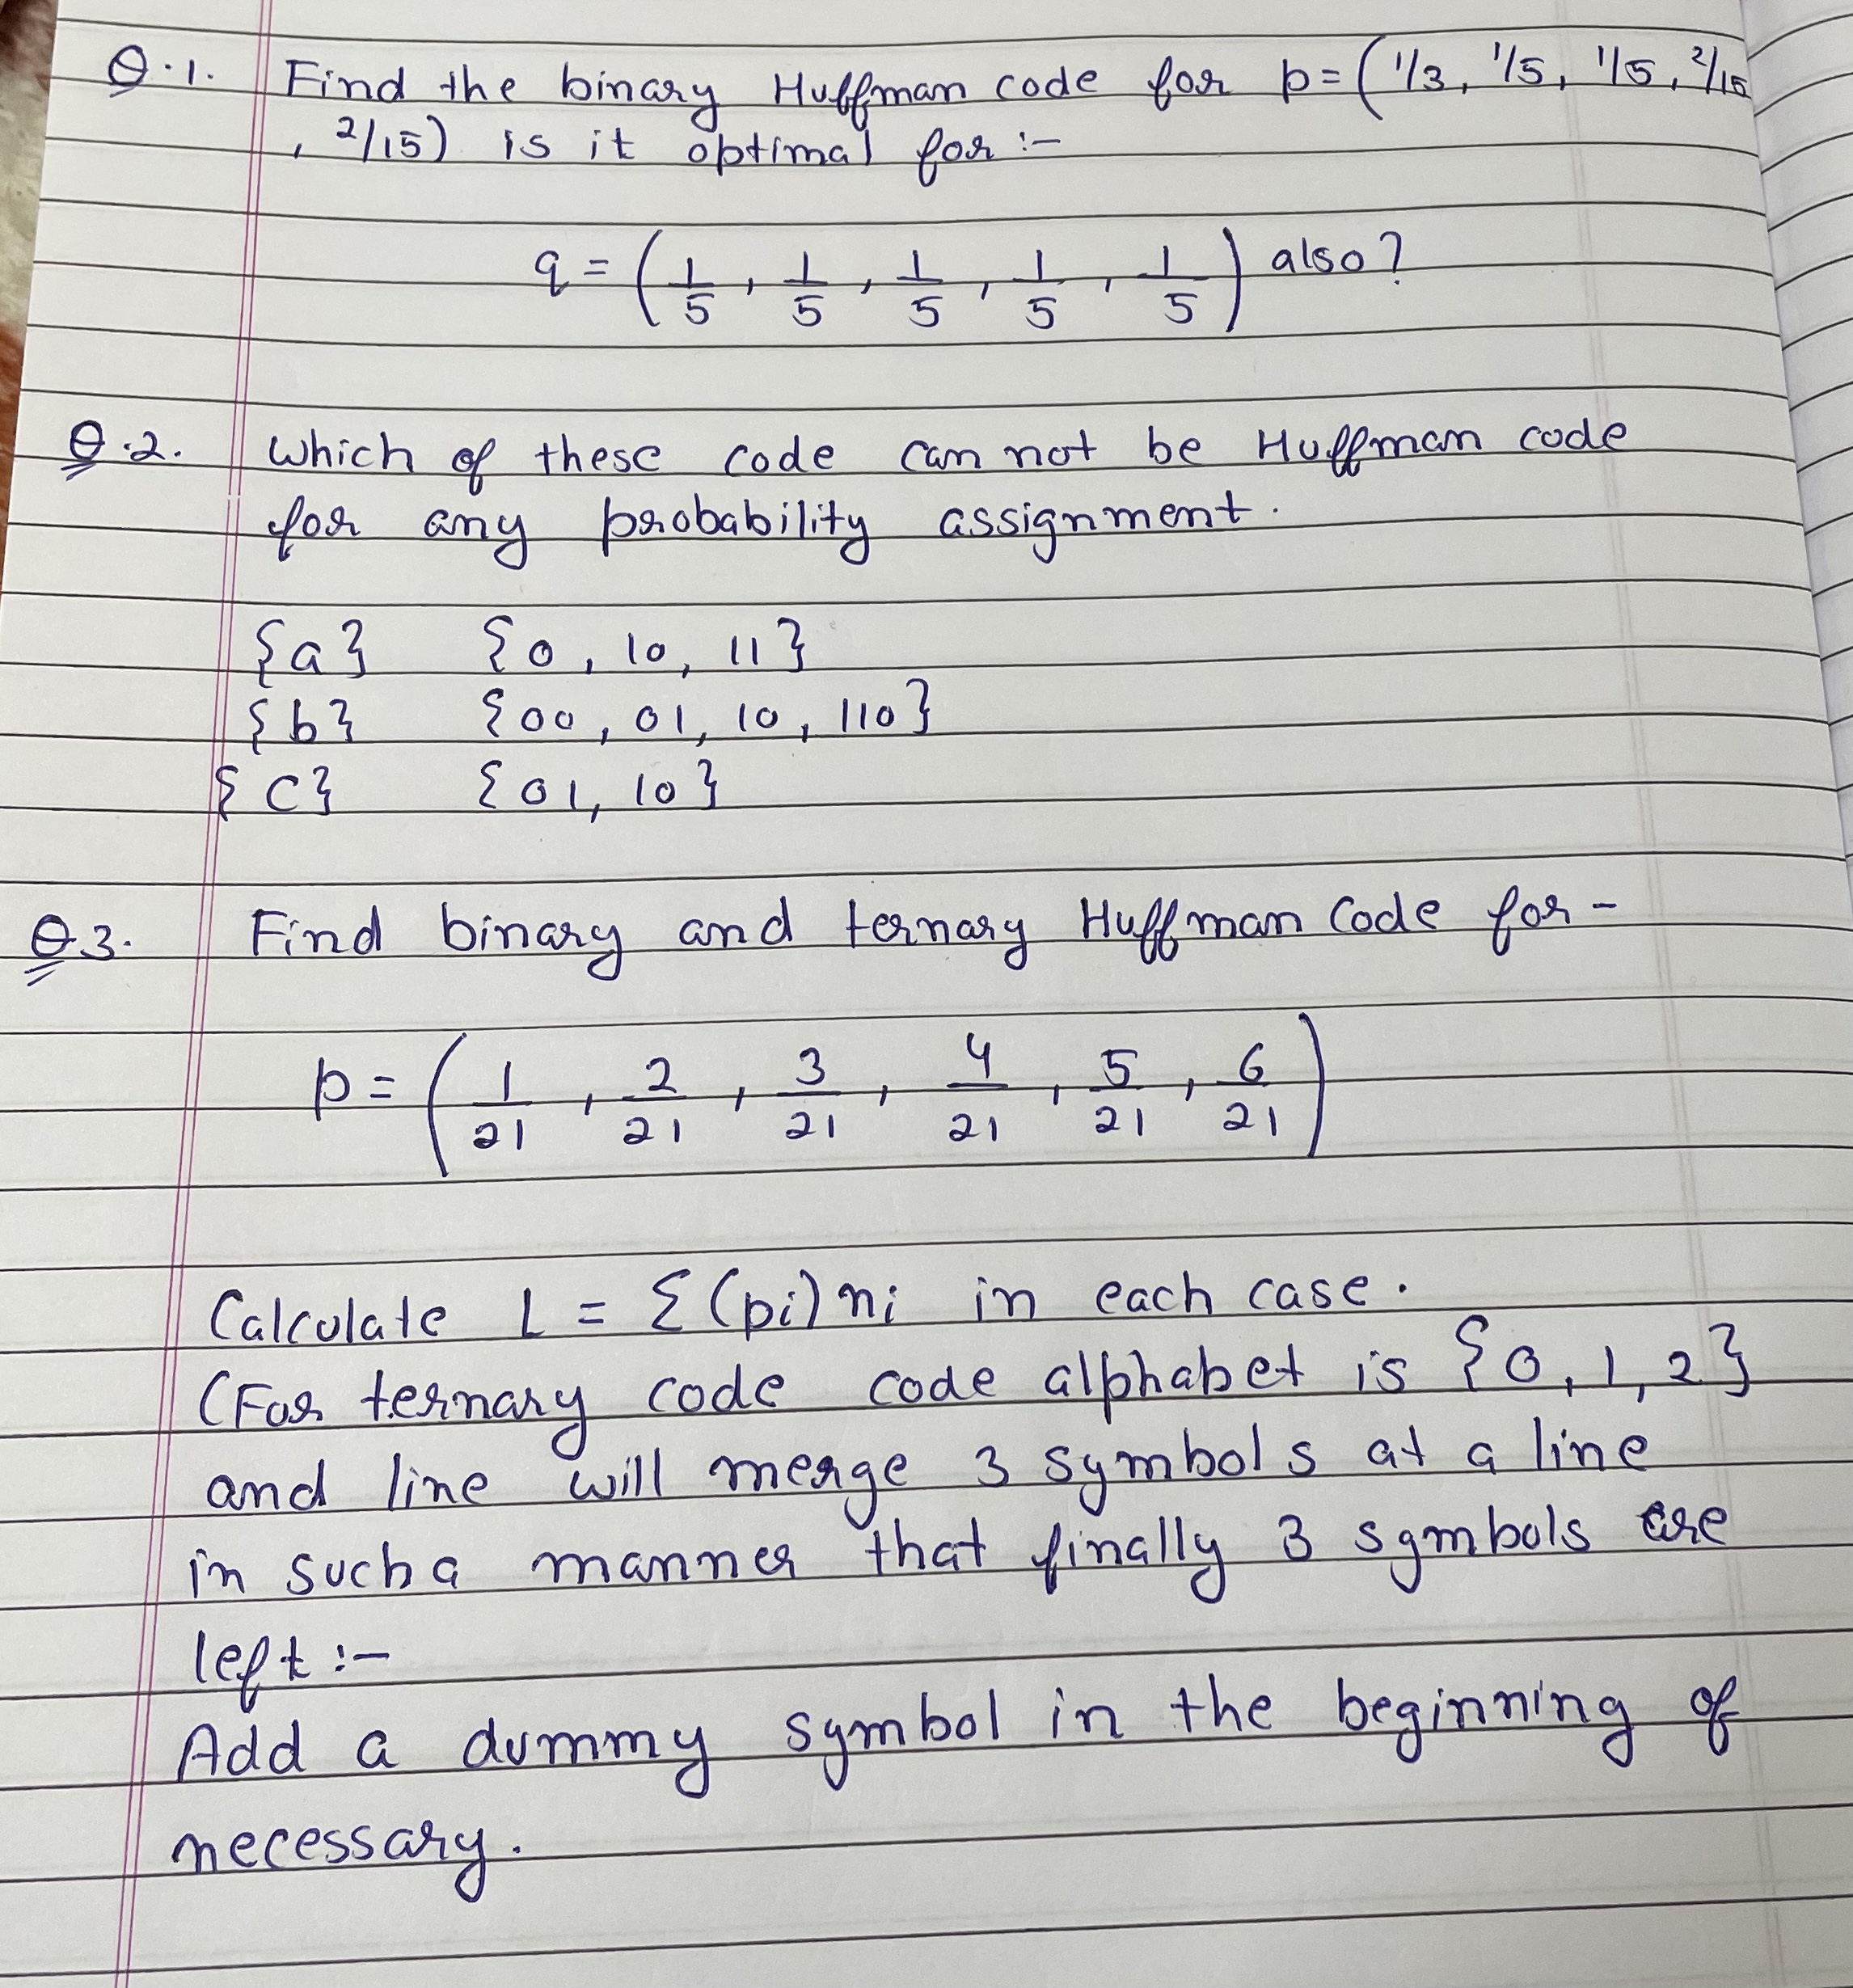 Q.1. Find the binary Huffman code for p = (1/3, 1/5, 1/5, 2/15
, 2/15) is it optimal for :-
q = (1/5, 1/5, 1/5, 1/5, 1/5) also?
Q.2. Which of these code can not be Huffman code
for any probability assignment.
{a} {0, 10, 11}
{b} {00, 01, 10, 110}
{c} {01, 10}
Q3. Find binary and ternary Huffman Code for -
p = (1/21, 2/21, 3/21, 4/21, 5/21, 6/21)
Calculate L = Σ(pi) ni in each case.
(For ternary code code alphabet is {0, 1, 2}
and line will merge 3 symbols at a line
in such a manner that finally 3 symbols are
left :-
Add a dummy symbol in the beginning of
necessary.